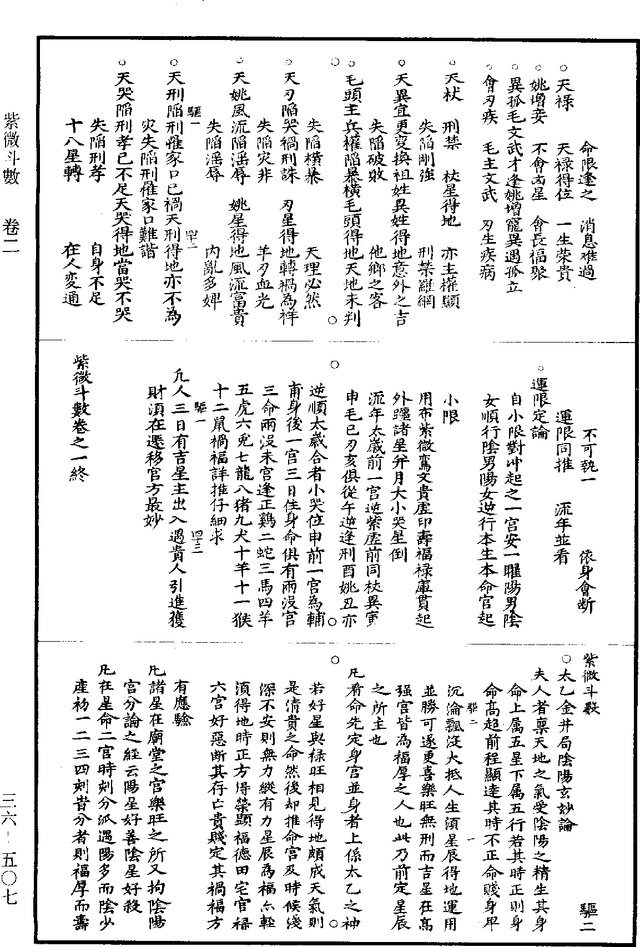 紫微斗數 卷二
三六—五〇七
命限逢之 消息难過
○天禄 天禄得位 一生荣貴
○姚增妾 不會凶星 會長福聚
○異孤毛文武才逢姚增寵異遇孤立
○會刃疾 毛主文武 刃生疾病
○天杖 刑禁 杖星得地 亦主權顯
失陷剛強 刑禁難網
○天異宜更变換祖姓異姓得地意外之吉
失陷破敗 他鄉之客
○毛頭主兵權陷暴橫毛頭得地天地未判
失陷横暴 天理必然
○天刃陷哭禍刑誅 刃星得地轉禍為祥
失陷灾非 羊刃血光
○天姚風流陷滛辱 姚星得地風流富貴
失陷滛辱 內亂多婢
○天刑陷刑罹家口已禍天刑得地亦不為
灾失陷刑罹家口難諧
○天哭陷刑孝已不足天哭得地當哭不哭
失陷刑孝 自身不足
十八星轉 在人変通
不可執一 依身會断
運限同推 流年並看
○運限定論
自小限對冲起之一宮安一曜陽男陰
女順行陰男陽女逆行本生本命宮起
小限
用布紫微鸞文貴虛印壽福禄庫貫起
外躔諸星分月大小哭星倒
流年太歲前一宮逆紫虛前同杖異寅
申毛已刃亥俱從午逆逢刑酉姚丑亦
逆順太歲合者小哭位申前一宮為輔
甫身後一宮三日住身命俱有兩没宮
三命兩没未宮逢正鷄二蛇三馬四羊
五虎六兎七龍八猪九犬十羊十一猴
十二鼠禍福詳推仔細求
凢人三日有吉星主出入遇貴人引進獲
財須在遷移官方最妙
紫微斗數卷之一終
紫微斗数 驅二
○太乙金井局陰陽玄妙論
夫人者禀天地之氣受陰陽之精生其身
命上属五星下属五行若其時正則身
命高超前程顯達其時不正命賤身卑
沉淪飄泛大抵人生須星辰得地運用
並勝可遂更喜樂旺無刑而吉星在高
强宮皆為福厚之人也此乃前定星辰
之所主也
凢看命先定身宮並身者上係太乙之神
若好星與禄旺相見得地頗成天氣則
是清貴之命然後却推命宮及時候淺
深不安則無力縱有力星辰為福亦輊
須得地時正方得榮顯福德田宅官禄
六宮好惡断其存亡貴賤定其禍福方
有應驗
凢諸星在廟堂之宮樂旺之所又拘陰陽
宮分論之経云陽星好善陰星好殺
凢在星命二宮時刻分派遇陽多而陰少
產初一二三四刻貴分者則福厚而壽